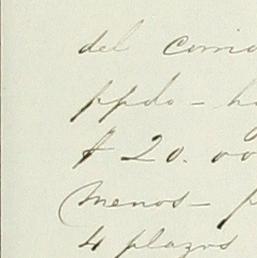 del corrio
ppdo - h
$ 20.00
menos - p
4 plazos